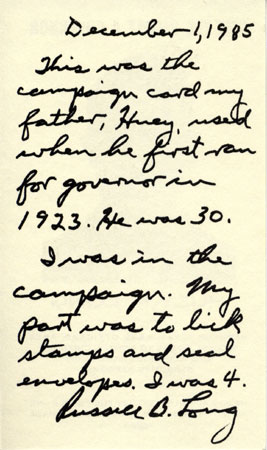 December 1, 1985
This was the
campaign card my
father, Huey, used
when he first ran
for governor in
1923. He was 30.
I was in the
campaign. My
part was to lick
stamps and seal
envelopes. I was 4.
Russell B. Long